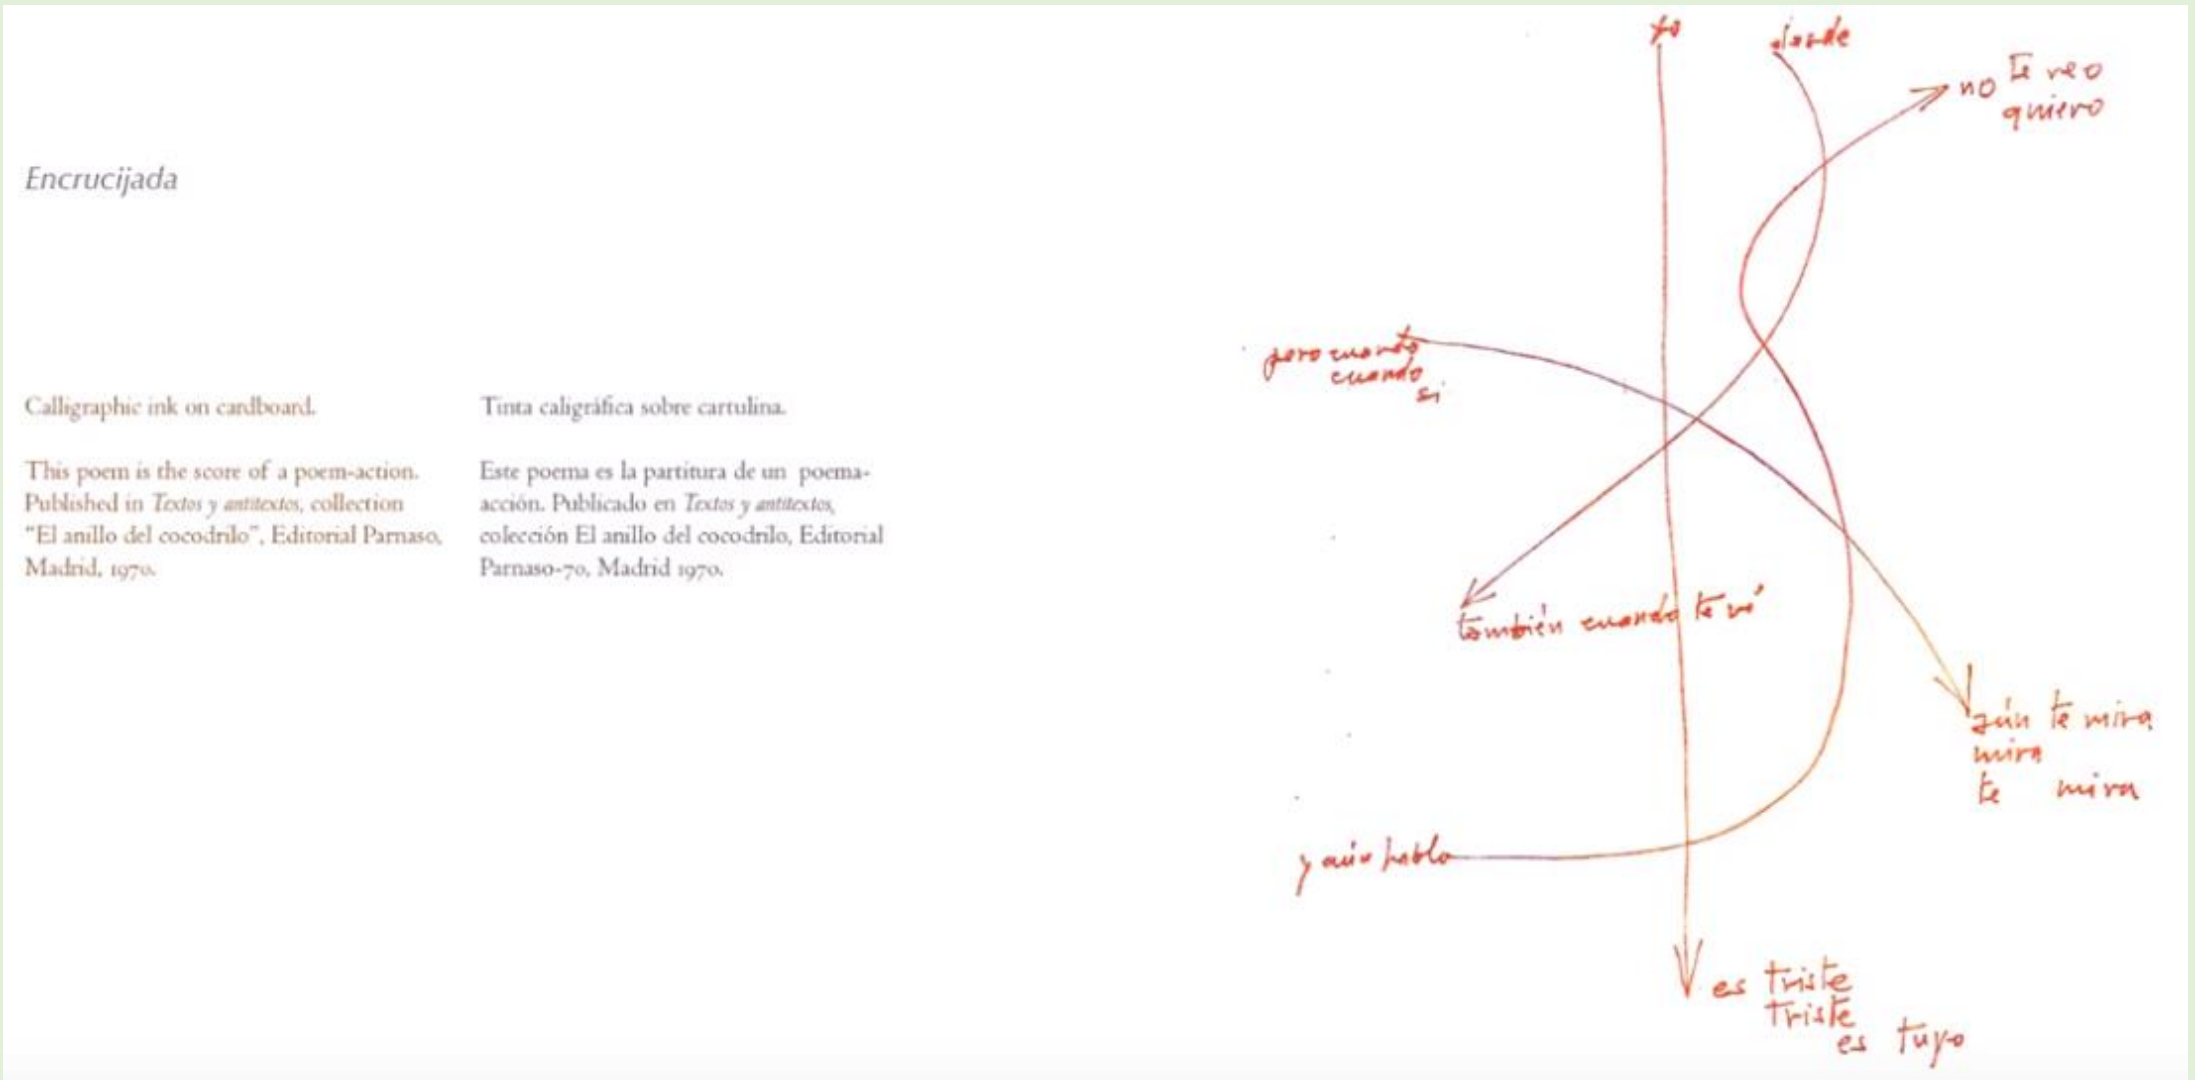 Encrucijada
Calligraphic ink on cardboard.
This poem is the score of a poem-action.
Published in Textos y antitextos, collection
“El anillo del cocodrilo”, Editorial Parnaso,
Madrid, 1970.
Tinta caligráfica sobre cartulina.
Este poema es la partitura de un poema-
acción. Publicado en Textos y antitextos,
colección El anillo del cocodrilo, Editorial
Parnaso-70, Madrid 1970.
yo
no te veo
quiero
pero cuando
cuando
si
también cuando te vi
aún te mira
mira
te mira
y aún hablo
es triste
triste
es tuyo